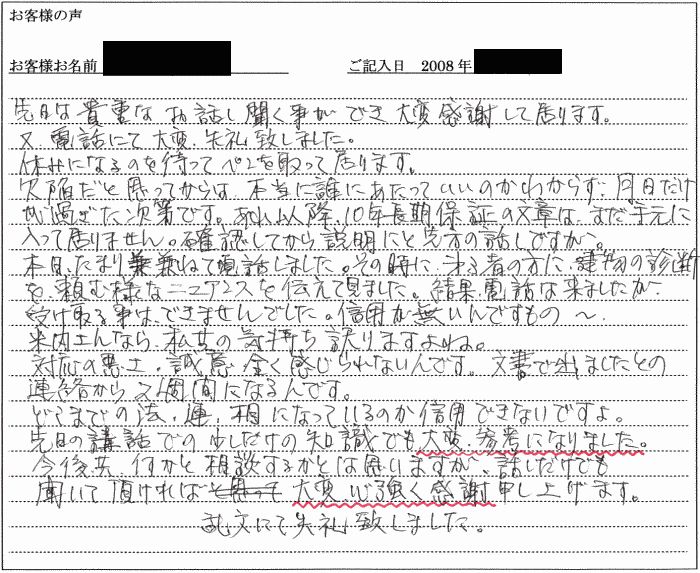 お客様の声
お客様お名前
ご記入日 2008年
先日は貴重なお話し聞く事ができ大変感謝して居ります。
又、電話にて大変失礼致しました。
休みになるのを待ってペンを取って居ります。
欠陥だと思ってからは、本当に誰にあたっていいのかわからず、月日だけ
が過ぎた次第です。あれ以降、10年長期保証の文章は、まだ手元に
入って居りません。確認してから説明にと先方の話しですが。
本日、たまり兼ねて電話しました。その時に、第三者の方に、建物の診断
を頼む様なニュアンスを伝えて見ました。結果電話は来ましたが、
受け取る事はできませんでした。信用が無いんですもの〜
来内さんなら、私共の気持ち訳りますよね。
対応の悪さ、誠意全く感じられないんです。文書で出ましたとの
連絡から2週間になるんです。
どこまでの法・連・相になっているのか信用できないですよ。
先日の講話での少しだけの知識でも大変、参考になりました。
今後共、何かと相談するかとは思いますが、話しだけでも
聞いて頂ければ 大変心強く感謝申し上げます。
乱文にて失礼致しました。